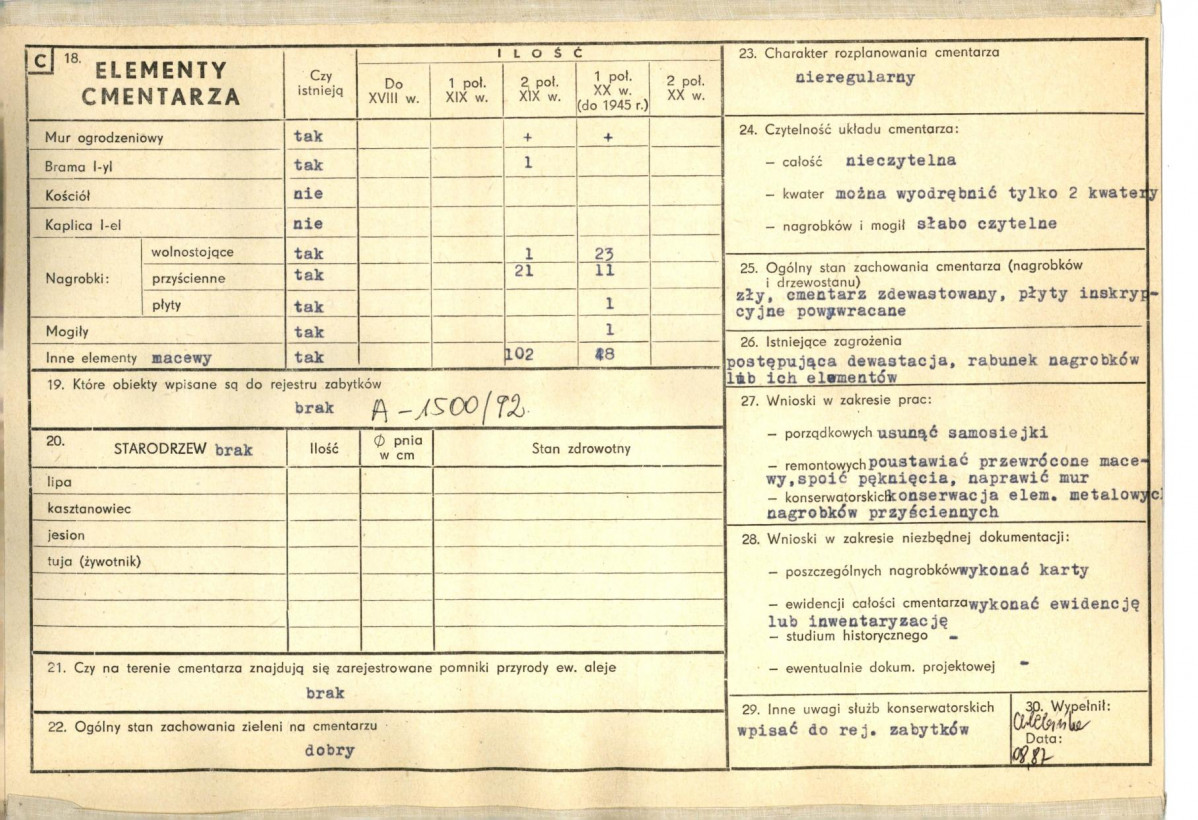 C 18. ELEMENTY CMENTARZA
Czy istnieją
ILOŚĆ
Do XVIII w.
1 poł. XIX w.
2 poł. XIX w.
1 poł. XX w. (do 1945 r.)
2 poł. XX w.
Mur ogrodzeniowy tak + +
Brama l-yl tak 1
Kościół nie
Kaplica l-el nie
Nagrobki: wolnostojące tak 1 23
przyścienne tak 21 11
płyty tak 1
Mogiły tak 1
Inne elementy macewy tak 102 48
19. Które obiekty wpisane są do rejestru zabytków
brak A-1500/92.
20. STARODRZEW brak
Ilość
Ø pnia w cm
Stan zdrowotny
lipa
kasztanowiec
jesion
tuja (żywotnik)
21. Czy na terenie cmentarza znajdują się zarejestrowane pomniki przyrody ew. aleje
brak
22. Ogólny stan zachowania zieleni na cmentarzu
dobry
23. Charakter rozplanowania cmentarza
nieregularny
24. Czytelność układu cmentarza:
– całość nieczytelna
– kwater można wyodrębnić tylko 2 kwatery
– nagrobków i mogił słabo czytelne
25. Ogólny stan zachowania cmentarza (nagrobków
i drzewostanu)
zły, cmentarz zdewastowany, płyty inskryp-
cyjne powywracane
26. Istniejące zagrożenia
postępująca dewastacja, rabunek nagrobków
lub ich elementów
27. Wnioski w zakresie prac:
– porządkowych usunąć samosiejki
– remontowych poustawiać przewrócone mace-
wy, spoić pęknięcia, naprawić mur
– konserwatorskich konserwacja elem. metalowych
nagrobków przyściennych
28. Wnioski w zakresie niezbędnej dokumentacji:
– poszczególnych nagrobków wykonać karty
– ewidencji całości cmentarza wykonać ewidencję
lub inwentaryzację
– studium historycznego -
– ewentualnie dokum. projektowej -
29. Inne uwagi służb konserwatorskich
wpisać do rej. zabytków
30. Wypełnił:
Data:
08,87